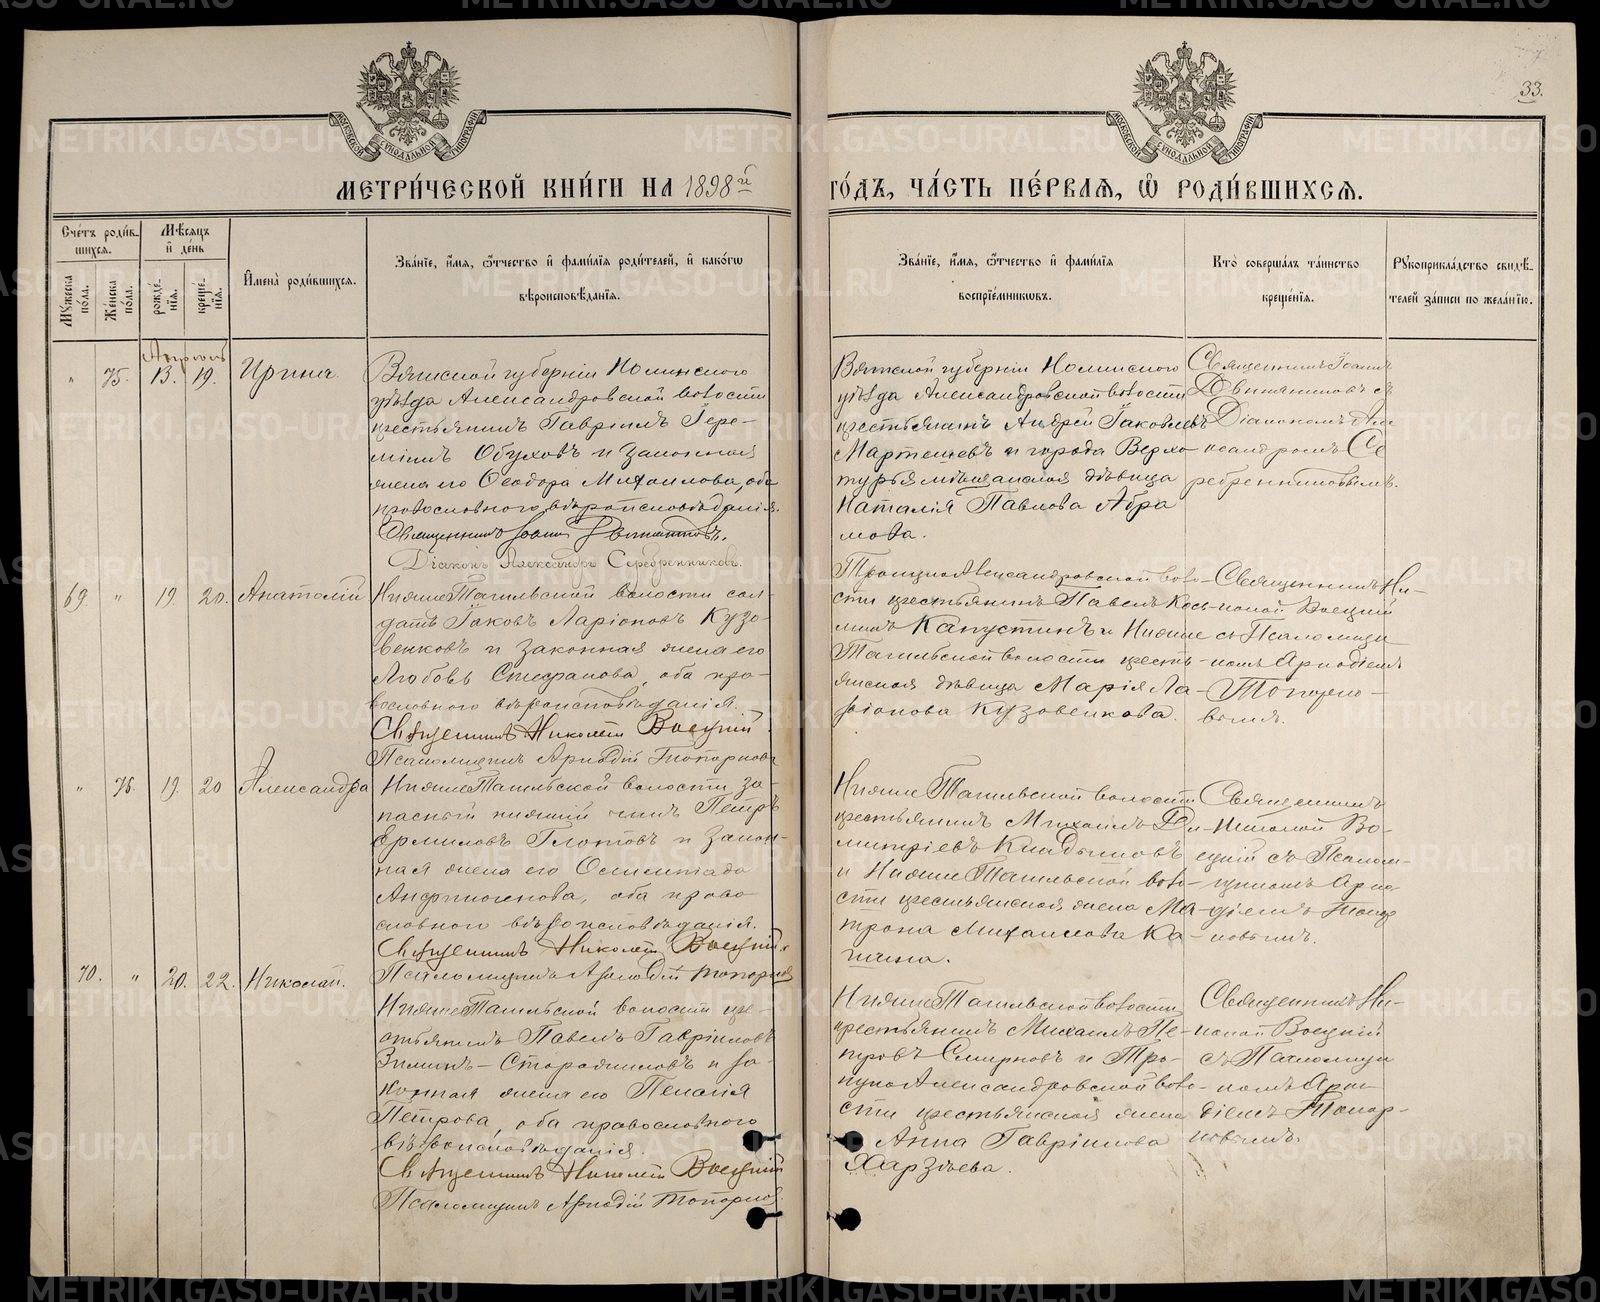 33.
МОСКОВСКОЙ СѴНОДАЛЬНОЙ ТИПОГРАФІИ
МОСКОВСКОЙ СѴНОДАЛЬНОЙ ТИПОГРАФІИ
МЕТРИ́ЧЕСКОЙ КНИ́ГИ НА 1898й
ГО́ДЪ, ЧА́СТЬ ПЕ́РВАѦ, Ѡ҆ РОДИ́ВШИХСѦ.
Сче́тъ роди́в-
шихся.
Мѣ́сяцъ
и҆ де́нь
Мꙋ́жеска
по́ла.
Же́нска
по́ла.
рожде́-
нїя.
креще́-
нїя.
И҆мена̀ роди́вшихся.
Зва́нїе, и҆́мя, ѻ҆́тчество и҆ фами́лїя роди́телей, и҆ како́гѡ
вѣроисповѣ́данїя.
Зва́нїе, и҆́мя, ѻ҆́тчество и҆ фами́лїя
воспрїе́мникѡвъ.
Кто̀ соверша́лъ та́инство
креще́нїя.
Рꙋкоприкла́дство свидѣ́-
телей за́писи по жела́нїю.
Апрѣль
" 75. 13. 19. Ирина.
Вятской губерніи Нолинского
уѣзда Александровской волости
крестьянинъ Гавріилъ Іере-
міинъ Обуховъ и законная
жена его Ѳеодора Михаилова, оба
православного вѣроисповѣданія.
Священникъ Іоаннъ Двиняниновъ.
Діаконъ Александръ Серебренниковъ.
Вятской губерніи Нолинского
уѣзда Александровской волости
крестьянинъ Андрей Іаковлевъ
Мартешевъ и города Верхо
турья мѣщанская дѣвица
Наталія Павлова Абра
мова.
Священникъ Іоаннъ
Двиняниновъ съ
Діакономъ Але
ксандромъ Се
ребренниковымъ.
69. " 19. 20. Анатолій
Нижне Тагильской волости сол-
датъ Іаковъ Ларіоновъ Кузо-
венковъ и законная жена его
Любовь Стефанова, оба пра-
вославного вѣроисповѣданія.
Священникъ Николай Воецкій
Псаломщикъ Аркадій Топорковъ
Троицко Александровской воло-
сти крестьянинъ Павелъ Косъ-
минъ Капустинъ и Нижне
Тагильской волости кресть-
янская дѣвица Марія Ла-
ріонова Кузовенкова.
Священникъ Ни-
колай Воецкій
съ Псаломщи-
комъ Аркадіемъ
Топорко-
вымъ.
" 76. 19. 20 Александра
Нижне Тагильской волости за-
пасный нижній чинъ Петръ
Ермиловъ Глотовъ и закон-
ная жена его
Анфиногенова, оба право
славного вѣроисповѣданія.
Священникъ Николай Воецкій
Псаломщикъ Аркадій Топорковъ
Нижне Тагильской волости
крестьянинъ Михаилъ Ди-
митріевъ
и Нижне Тагильской воло-
сти крестьянская жена Ма-
трона Михаилова Ка-
Священникъ
Николай Во-
ецкій съ Псалом-
щикомъ Арка
діемъ Топор
ковымъ.
70. " 20. 22. Николай.
Нижне Тагильской волости кре-
стьянинъ Павелъ Гавріиловъ
Зиминъ - и за-
конная жена его Пелагія
Петрова, оба православного
вѣроисповѣданія.
Священникъ Николай Воецкій
Псаломщикъ Аркадій Топорковъ
Нижне Тагильской волости
крестьянинъ Михаилъ Пе-
тровъ Смирновъ и Тро-
ицко Александровской воло-
сти крестьянская жена
Анна Гавріилова
Харзѣева.
Священникъ Ни-
колай Воецкій
съ Псаломщи
комъ Арка
діемъ Топор-
ковымъ.
METRIKI.GASO-URAL.RU